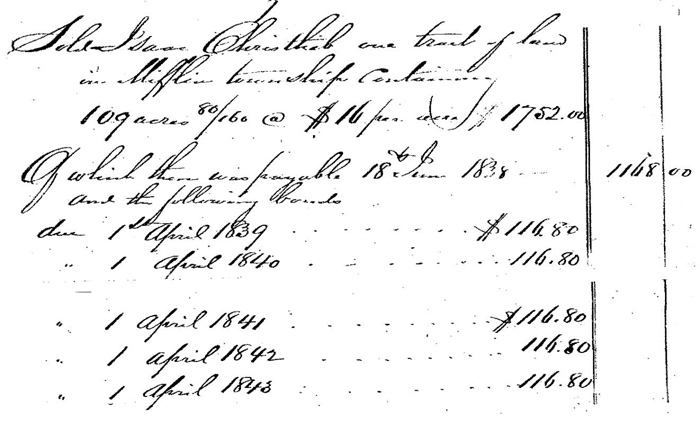 Sold Isaac Christlieb one tract of land
in Mifflin township containing
109 acres 80/160 @ $16 per acre $1752.00
Of which there was payable 18th June 1838 1168 00
and the following bonds
due 1st April 1839 . . . . . . . $116.80
" 1 April 1840 . . . . . . . 116.80
" 1 April 1841 . . . . . . . $116.80
" 1 April 1842 . . . . . . . 116.80
" 1 April 1843 . . . . . . . 116.80